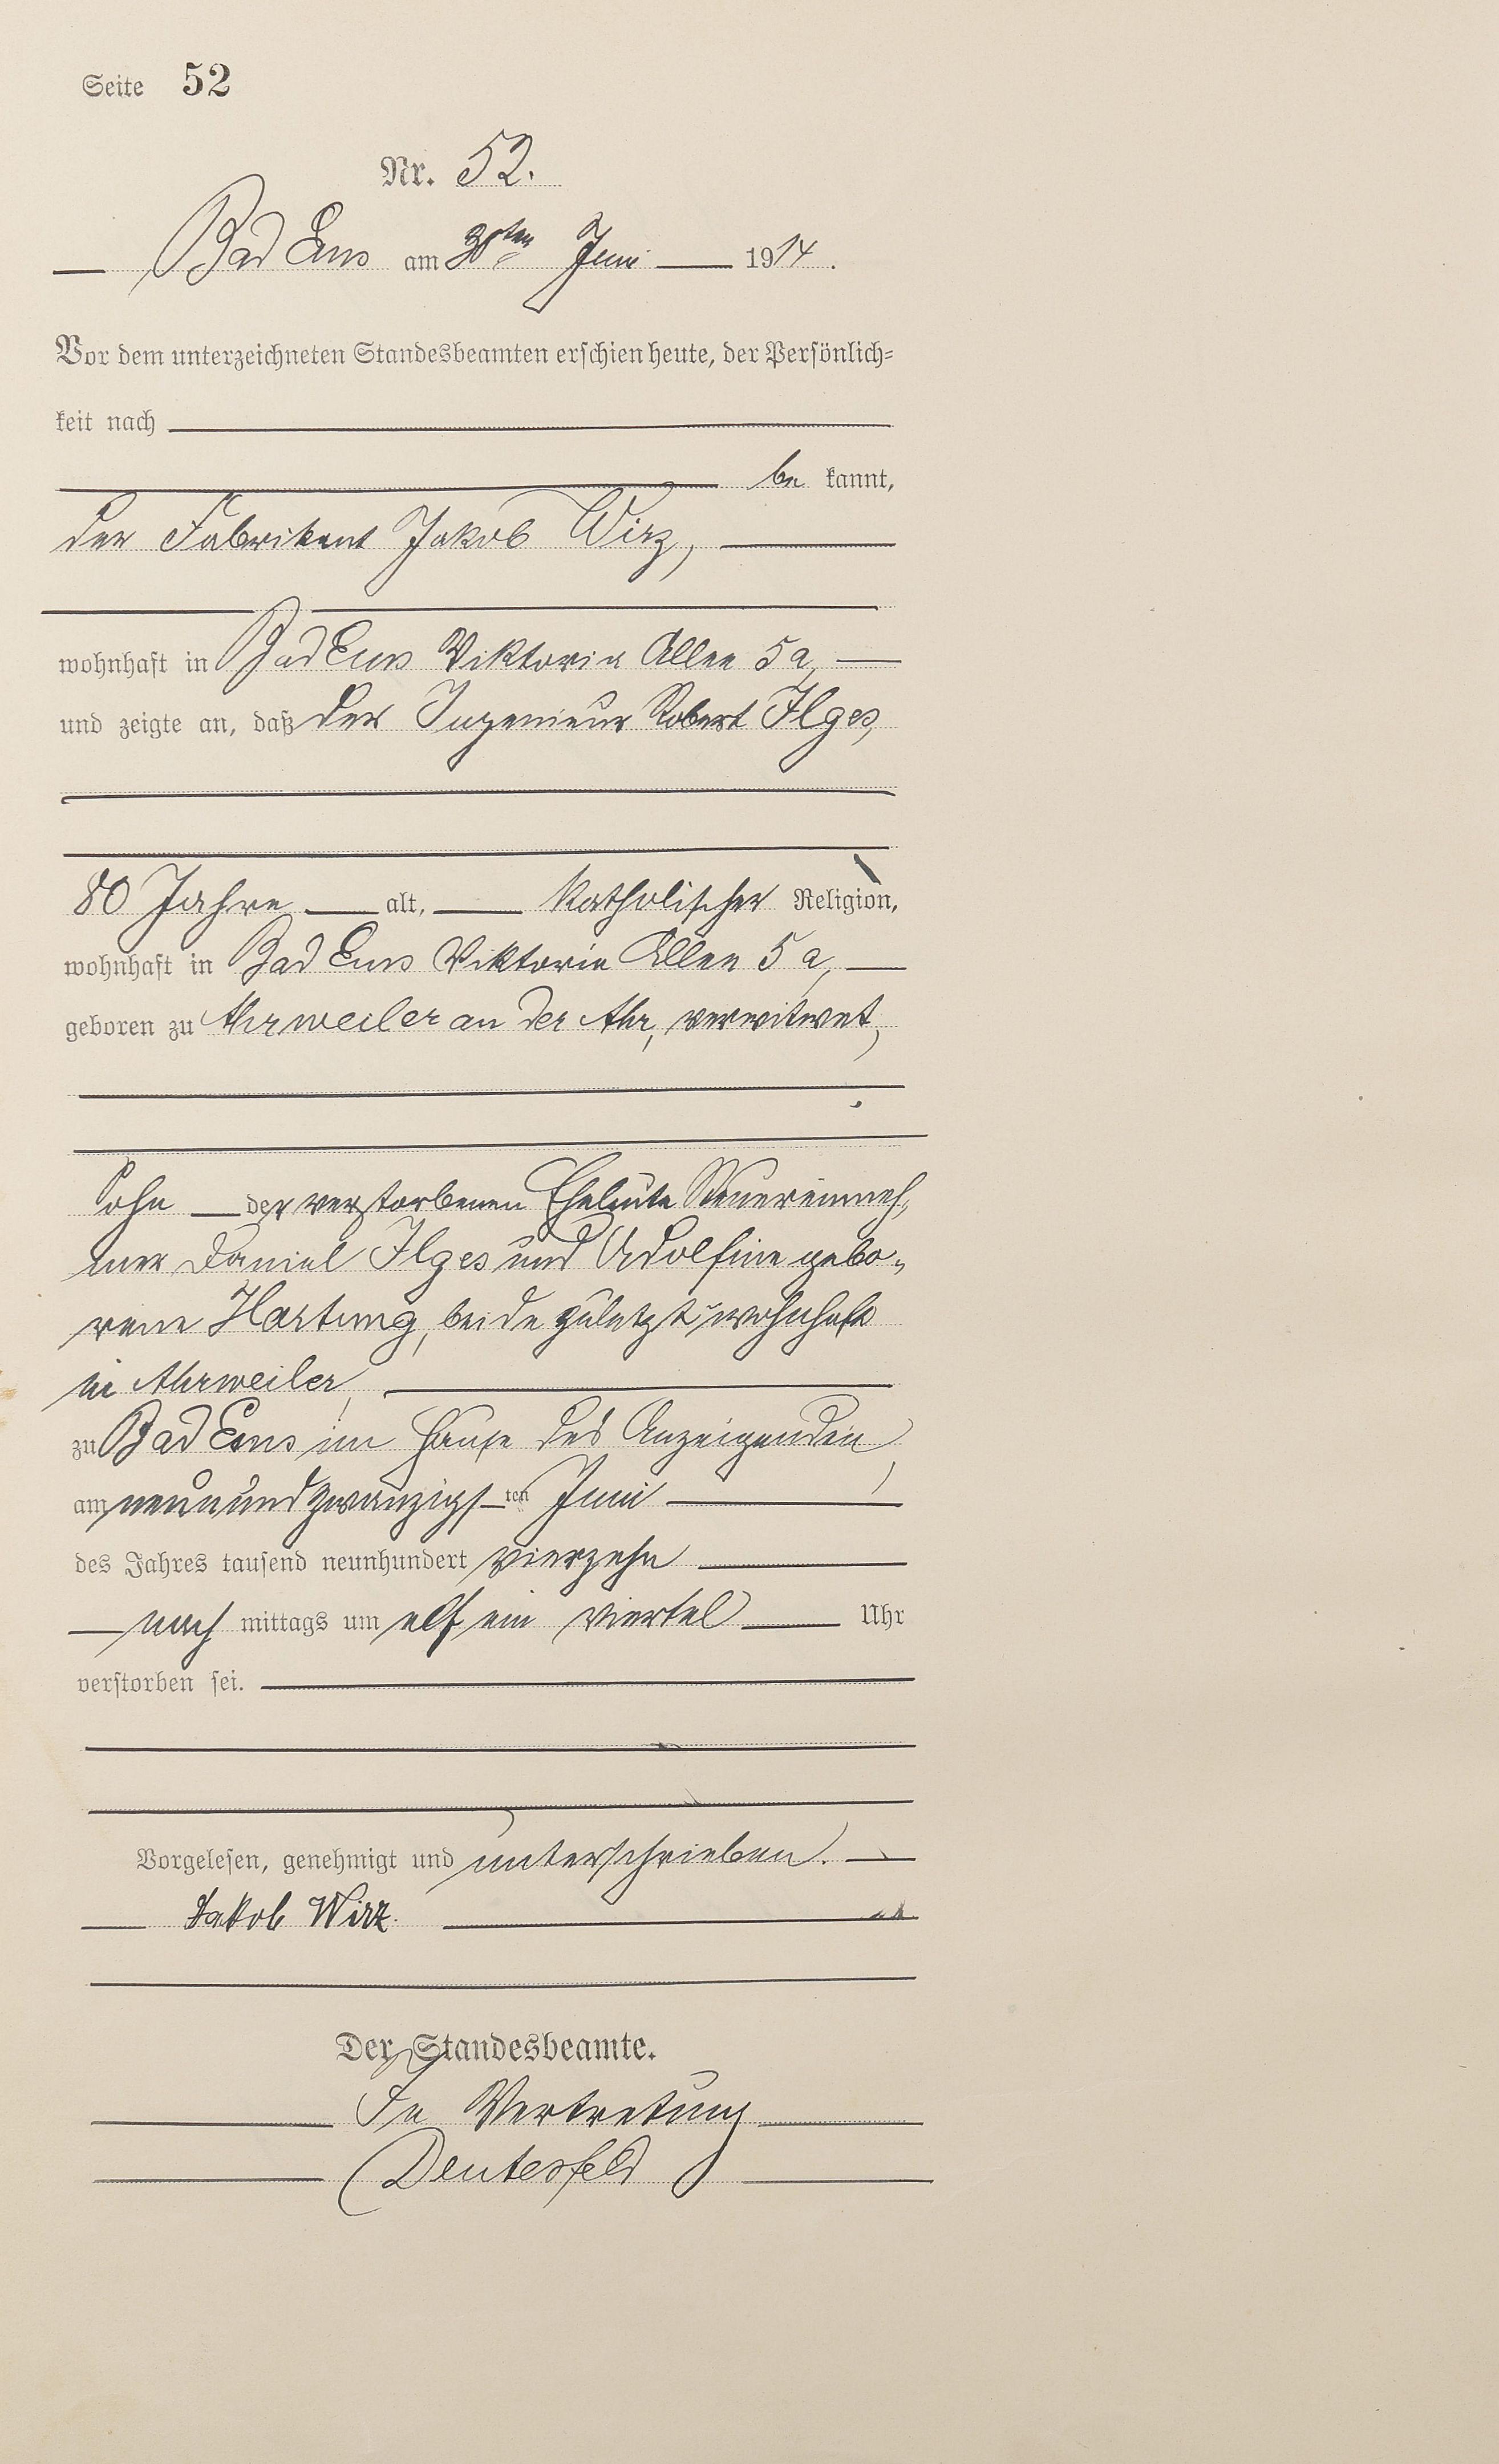 Seite 52
Nr. 52.
Bad Ems am 30ten Juni 1914.
Vor dem unterzeichneten Standesbeamten erschien heute, der Persönlich-
keit nach
be kannt,
der Fabrikant Jakob Wirz,
wohnhaft in Bad Ems Viktoria Allee 5a,
und zeigte an, daß der Ingenieur Robert Ilges,
80 Jahre alt, katholischer Religion,
wohnhaft in Bad Ems Viktoria Allee 5a,
geboren zu Ahrweiler an der Ahr, verwitwet,
Sohn der verstorbenen Eheleute Steuereinneh-
mer Daniel Ilges und Adolfine gebo-
rene Hartung, beide zuletzt wohnhaft
in Ahrweiler,
zu Bad Ems im Hause des Anzeigenden,
am neunundzwanzigsten Juni
des Jahres tausend neunhundert vierzehn
nach mittags um elf ein viertel Uhr
verstorben sei.
Vorgelesen, genehmigt und unterschrieben.
Jakob Wirz.
Der Standesbeamte.
In Vertretung
Deutesfeld